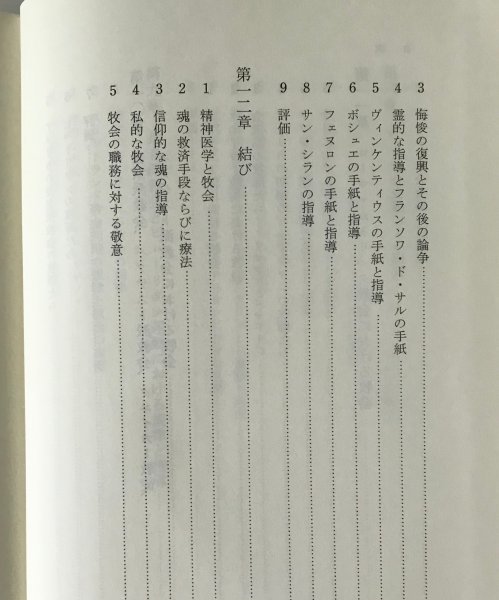 3 悔悛の復興とその後の論争
4 霊的な指導とフランソワ・ド・サルの手紙
5 ヴィンケンティウスの手紙と指導
6 ボシュエの手紙と指導
7 フェヌロンの手紙と指導
8 サン・シランの指導
9 評価
第一二章 結び
1 精神医学と牧会
2 魂の救済手段ならびに療法
3 信仰的な魂の指導
4 私的な牧会
5 牧会の職務に対する敬意